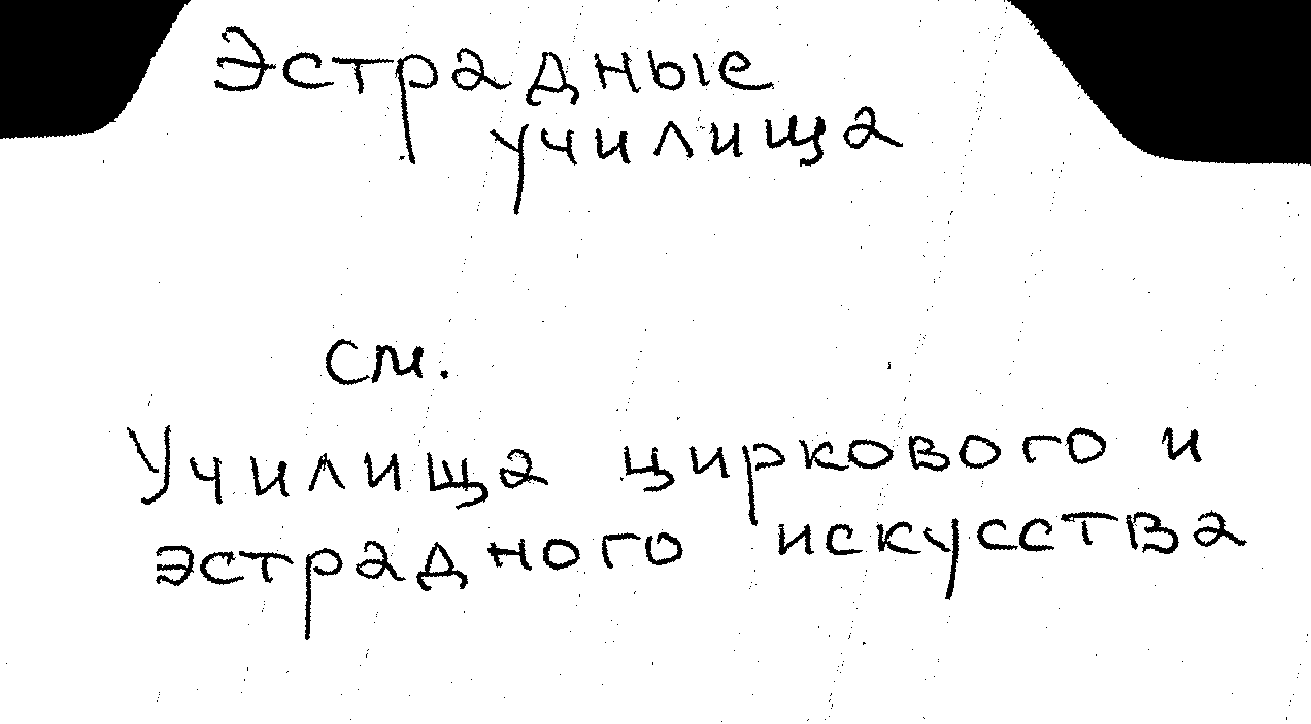 Эстрадные
училища
см.
Училища циркового и
эстрадного искусства